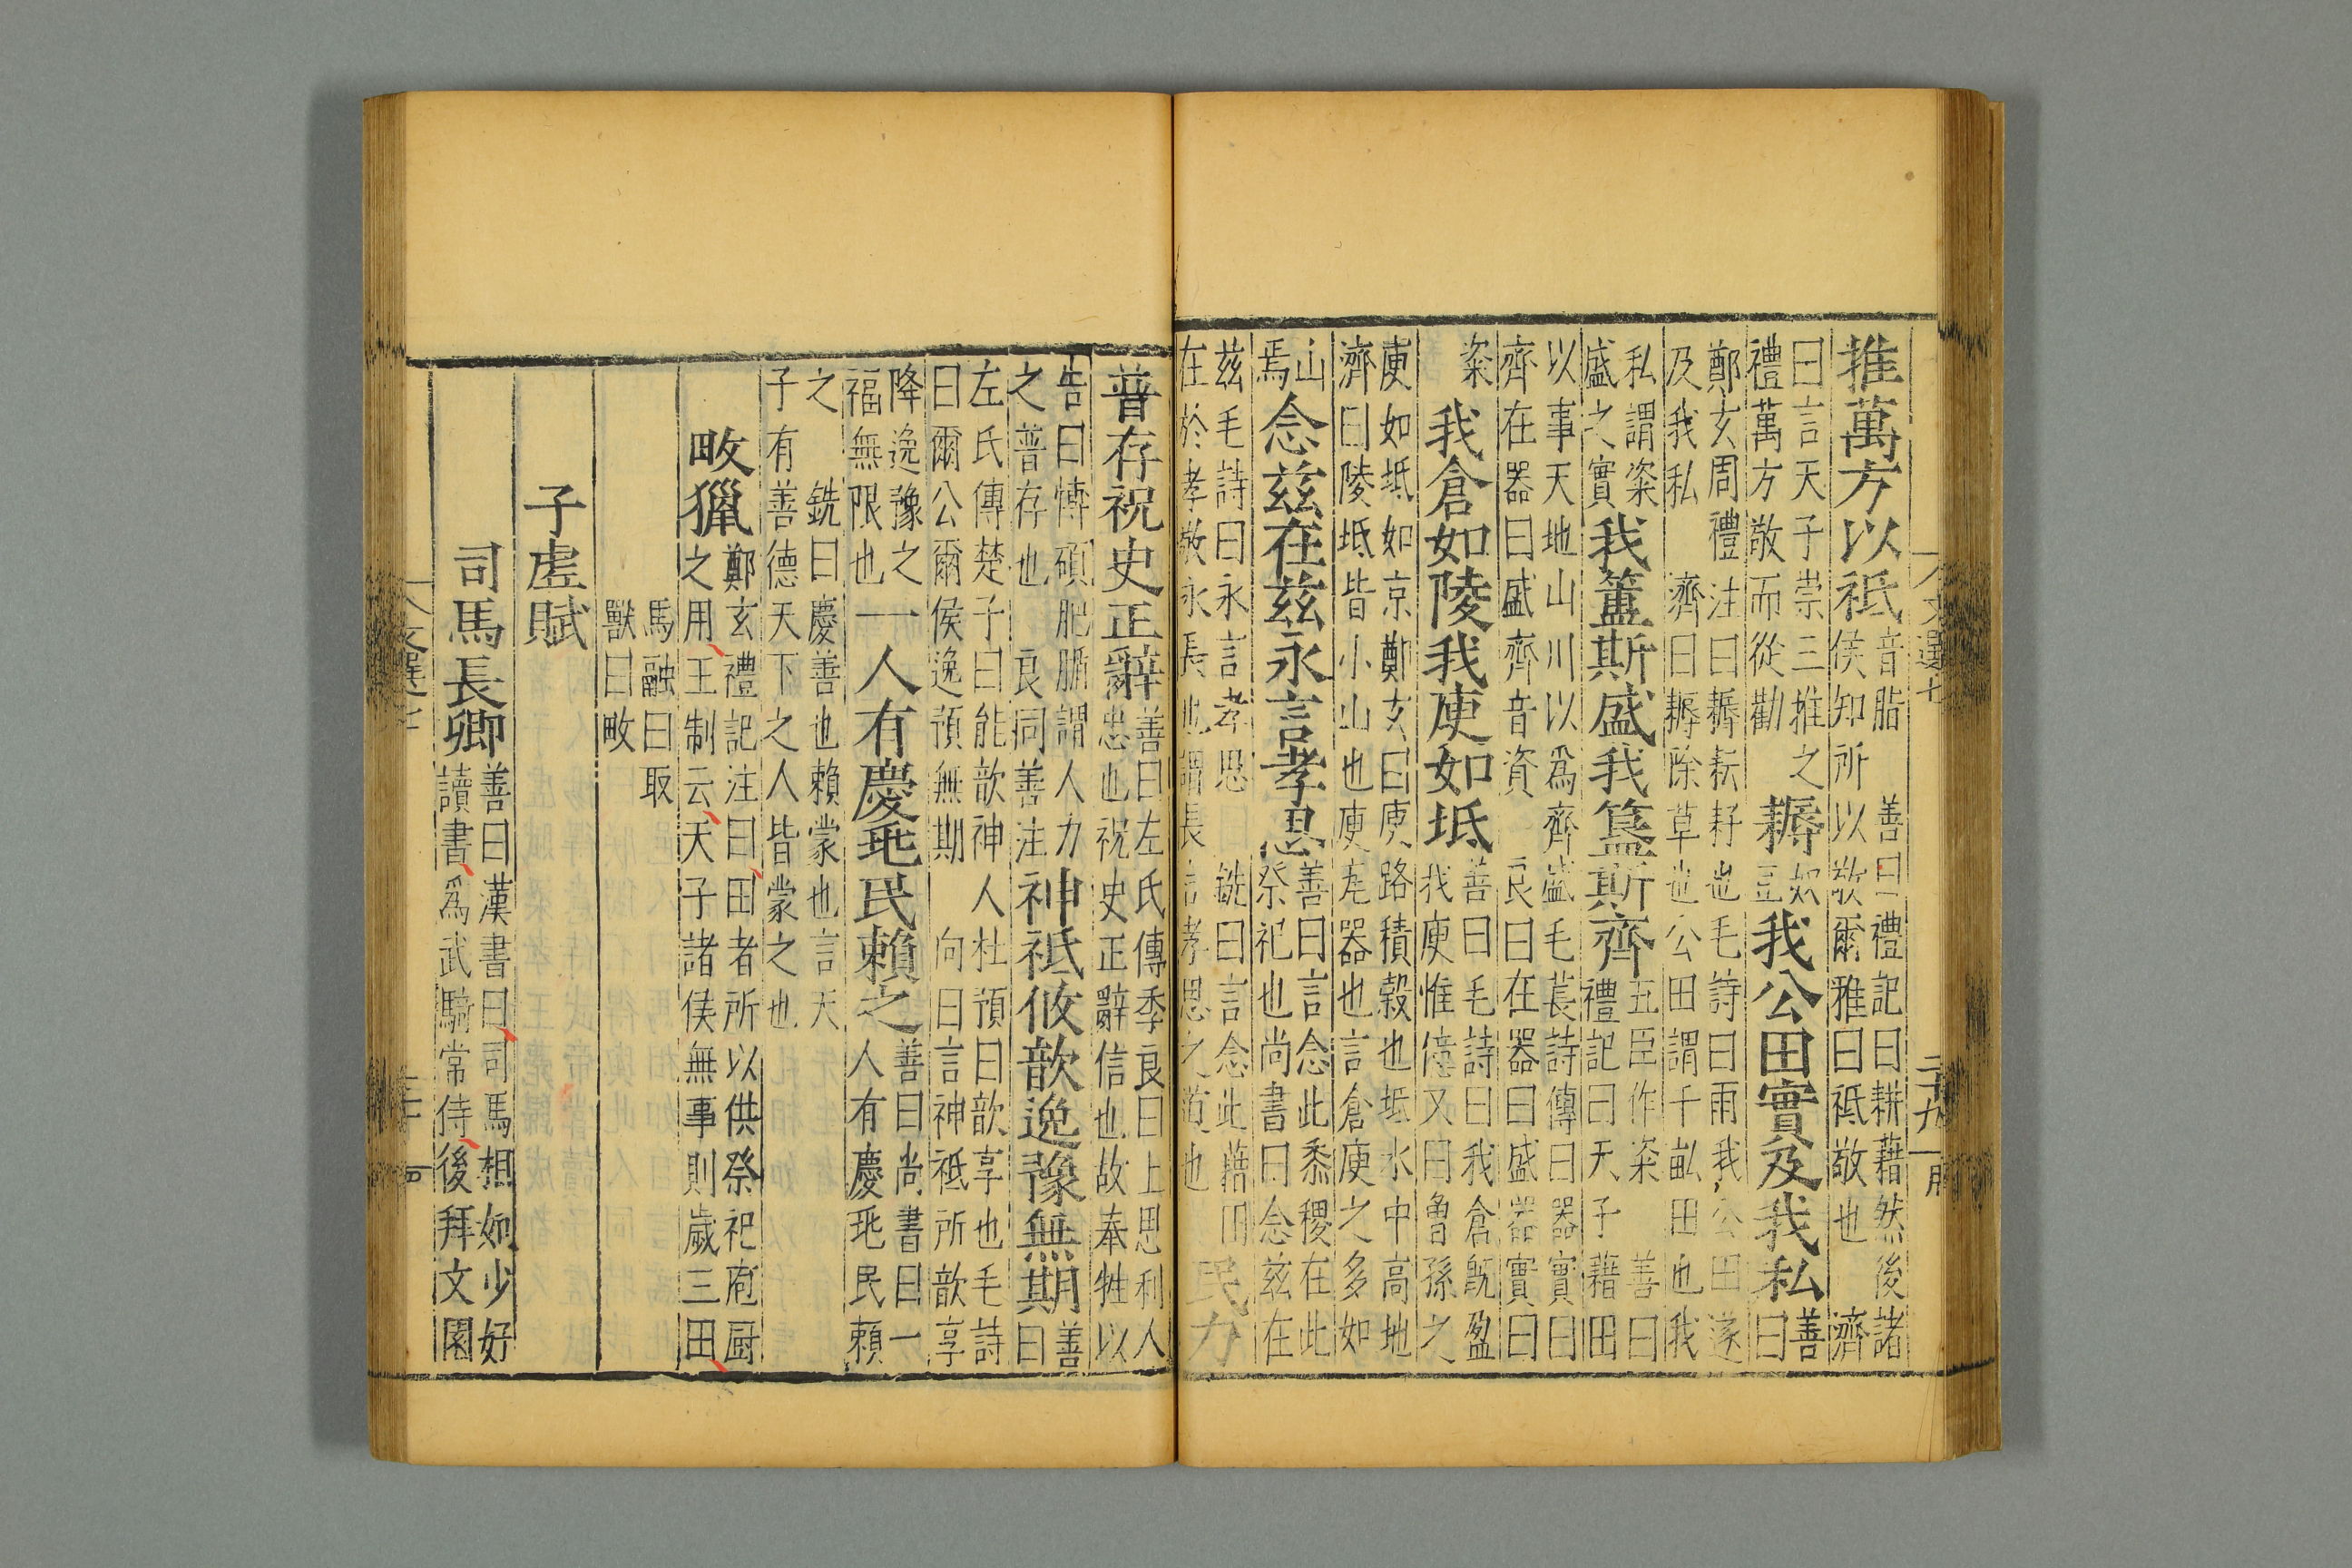 推萬方以祗音脂 善曰禮記曰耕藉然後諸
侯知所以敬爾雅曰祗敬也 濟
曰言天子崇三推之
禮萬方敬而從勸 耨奴豆我公田實及我私善曰
鄭玄周禮注曰耨耘耔也毛詩曰雨我公田遂
及我私 濟曰耨除草也公田謂千畝田也我
私謂粢
盛之實我簠斯盛我簋斯齊五臣作粢 善曰
禮記曰天子藉田
以事天地山川以為齊盛毛萇詩傳曰器實曰
齊在器曰盛齊音資 良曰在器曰盛器實曰
粢
我倉如陵我庾如坻善曰毛詩曰我倉旣盈
我庾惟億又曰魯孫之
庾如坻如京鄭玄曰庾路積穀也坻水中高地
濟曰陵坻皆小山也庾庬器也言倉庾之多如
山
焉念兹在兹永言孝思善曰言念此黍稷在此
祭祀也尚書曰念兹在
兹毛詩曰永言孝思 銑曰言念此藉田
在於孝敬永長也謂長言孝思之道也民力
普存祝史正辭善曰左氏傳季良曰上思利人
忠也祝史正辭信也故奉牲以
告曰博碩肥腯謂人力
之普存也 良同善注神祗攸歆逸豫無期善
曰
左氏傳楚子曰能歆神人杜預曰歆享也毛詩
曰爾公爾侯逸預無期 向曰言神祗所歆享
降逸豫之
福無限也一人有慶兆民賴之善曰尚書曰一
人有慶兆民賴
之 銑曰慶善也賴蒙也言天
子有善德天下之人皆蒙之也
畋獵鄭玄禮記注曰田者所以供祭祀庖厨
之用王制云天子諸侯無事則歲三田
馬融曰取
獸曰畋
子虛賦
司馬長卿善曰漢書曰司馬相如少好
讀書爲武騎常侍後拜文園
文選七
二十九